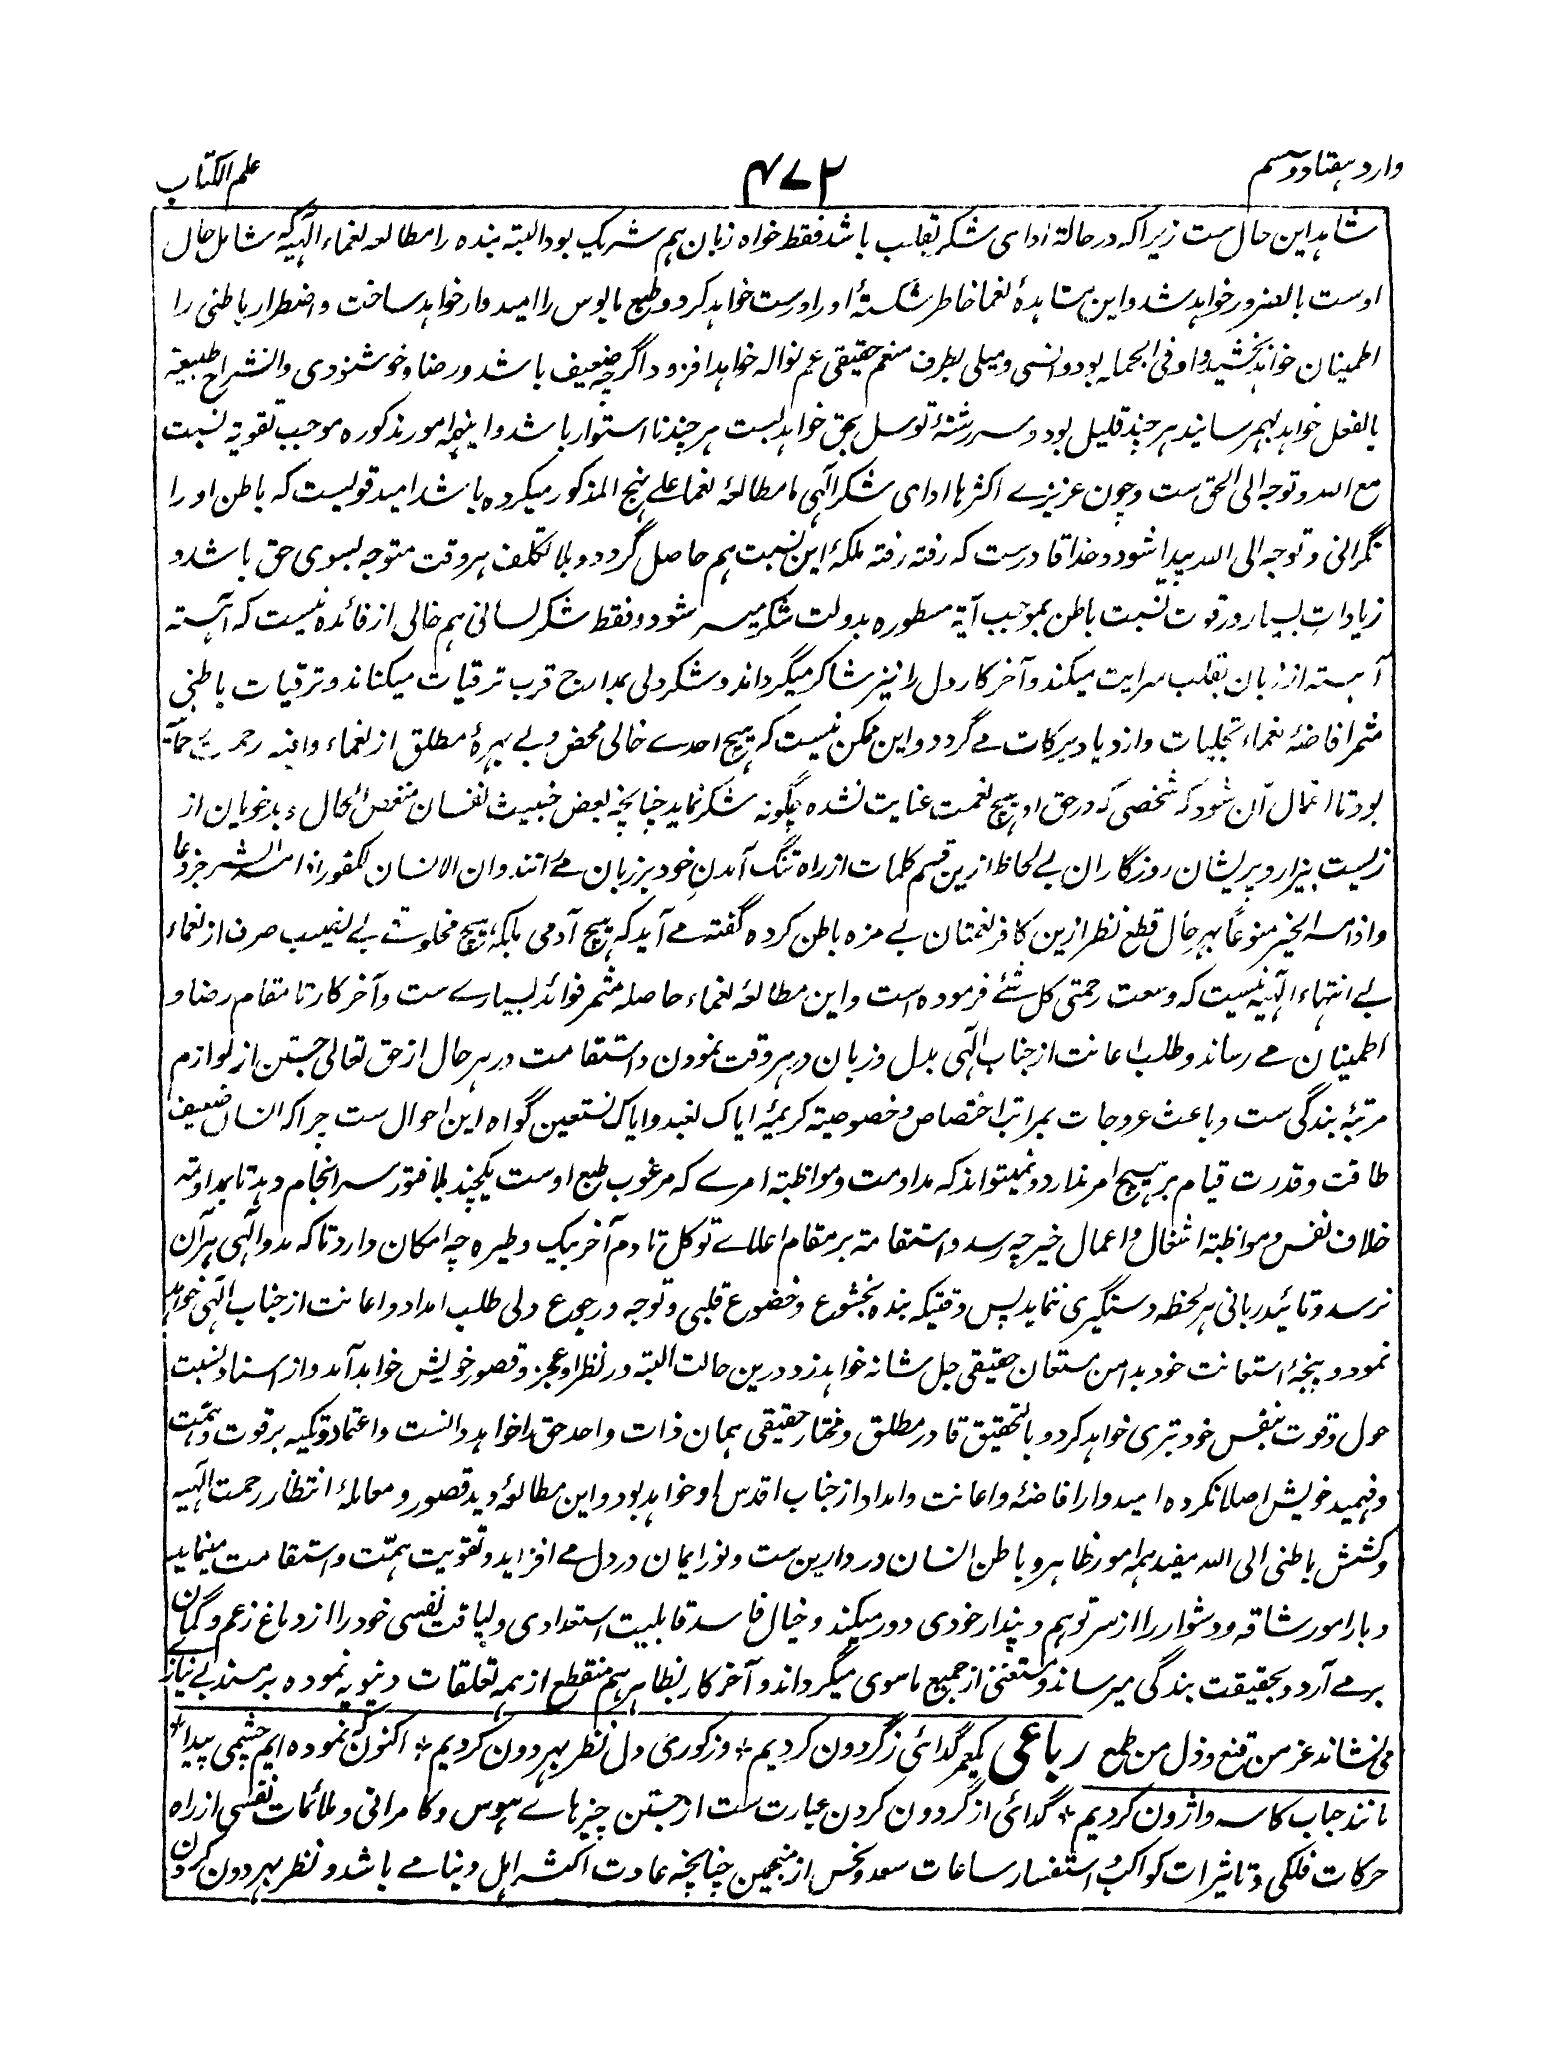 وارد ہفتاد و سیم
۴۷۲
علم الکتاب
شاہد این حال ست زیرا کہ در حالۃ ادای شکر بقلب باشد فقط خواہ زبان ہم شریک بود البتہ بندہ را مطالعہ نعماء الٰہیہ کہ شامل حال
اوست بالضرور خواہد شد و این مشاہدۂ نعما خاطر شکستۂ او را درست خواہد کرد و طبع مایوس را امیدوار خواہد ساخت و اضطرار باطنی را
اطمینان خواہد بخشید و او فی الجملہ بود و انسی و میلی بطرف منعم حقیقی عم نوالہ خواہد افزود اگرچہ ضعیف باشد و رضا و خوشنودی و انشراح طبیعیۃ
بالفعل خواہد بہم رسانید ہر چند قلیل بود و سر رشتۂ توسل بحق خواہد بست ہر چند نا استوار باشد و اینہمہ امور مذکورہ موجب تقویۃ نسبت
مع اللہ و توجہ الی الحق ست و چون عزیزے اکثرہا ادای شکر آلہی با مطالعۂ نعما علے نہج المذکور میکردہ باشد امید قولیست کہ باطن او را
نگرانی و توجہ الی اللہ پیدا شود و خدا قادرست کہ رفتہ رفتہ ملکۂ این نسبت ہم حاصل گردد و بلا تکلف ہر وقت متوجہ بسوی حق باشد و
زیادات بسیار در قوت نسبت باطن بموجب آیۃ مسطورہ بدولت شکر میسر شود و فقط شکر لسانی ہم خالی از فائدہ نیست کہ آہستہ
آہستہ از زبان بقلب سرایت میکند و آخر کار دل را نیز شاکر میگرداند و شکر دلی بمدارج قرب ترقیات میکناند و ترقیات باطنی
مثمر افاضۂ نعماء تجلیات و ازدیاد برکات مے گردد و این ممکن نیست کہ ہیچ احدے خالی محض و بے بہرۂ مطلق از نعماء وافیہ رحمت رحمانیہ
بود تا احتمال آن شود کہ شخصی کہ در حق او ہیچ نعمت عنایت نشدہ چگونہ شکر نماید چنانچہ بعض خبیث نفسان منغص الحال و بدخویان از
زیست بیزار و پریشان روزگاران بے لحاظ ازین قسم کلمات از راہ تنگ آمدن خود بر زبان مے آنند و ان الانسان لکفور اذا مسہ الشر جزوعا
و اذا مسہ الخیر منوعاً بہر حال قطع نظر ازین کافر نعمتان بے مزہ باطن کردہ گفتہ مے آید کہ ہیچ آدمی بلکہ ہیچ مخلوق بے نصیب صرف از نعماء
بے انتہاء الٰہیہ نیست کہ وسعت رحمتی کل شئے فرمودہ است و این مطالعۂ نعماء حاصلہ مثمر فوائد بسیارے ست و آخر کار تا مقام رضا و
اطمینان مے رساند و طلب اعانت از جناب الٰہی بدل و زبان در ہر وقت نمودن و استقامت در ہر حال از حق تعالی جستن از لوازم
مرتبۂ بندگی ست و باعث عروجات بمراتب اختصاص و خصوصیۃ کریمۂ ایاک نعبد و ایاک نستعین گواہ این احوال ست چرا کہ انسان ضعیف
طاقت و قدرت قیام بر ہیچ امر ندارد و نمیتواند کہ مداومت و مواظبۃ امرے کہ مرغوب طبع اوست یکچند بلا فتور سرانجام دہد تا بمداومتہ
خلاف نفس و مواظبۃ اشغال و اعمال خیر چہ رسد و استقامتہ بر مقام اعلاے توکل تا دم آخر بیک وطیرہ چہ امکان دارد تا کہ مدد آلہی ہر آن
نرسد و تائید ربانی ہر لحظہ دستگیری ننماید پس وقتیکہ بندہ بخشوع و خضوع قلبی و توجہ و رجوع دلی طلب امداد و اعانت از جناب الٰہی خواہد
نمود و پنجۂ استعانت خود بدامن مستعان حقیقی جل شانہ خواہد زد درین حالت البتہ در نظر او عجز و قصور خویش خواہد آمد و از اسناد نسبت
حول و قوت بنفس خود تبری خواہد کرد و بالتحقیق قادر مطلق و مختار حقیقی ہمان ذات واحد حق را خواہد دانست و اعتماد و تکیہ بر قوت و ہمّت
و فہمید خویش اصلا نکردہ امیدوار افاضۂ و اعانت و امداد از جناب اقدس او خواہد بود و این مطالعۂ دید قصور و معاملۂ انتظار رحمت الٰہیہ
و کشش باطنی الی اللہ مفید ہمہ امور ظاہر و باطن انسان در دارین ست و نور ایمان در دل مے افزاید و تقویت ہمّت و استقامت مینماید
و بار امور شاقہ و دشوار را از سر توہم و پندار خودی دور میکند و خیال فاسد قابلیت استعدادی و لیاقت نفسی خود را از دماغ زعم و گمان
بر مے آرد و بحقیقت بندگی میرساند و مستغنی از جمیع ماسوی میگرداند و آخر کار بظاہر ہم منقطع از ہمہ تعلقات دنیویہ نمودہ بر مسند بے نیازے
می نشاند عز من قنع و ذل من طمع رباعی یکعمر گدائی ز گردون کردیم * وز کوری دل نظر بہر دون کردیم * اکنون کہ نمودہ ایم چشمی پیدا *
مانند حباب کاسہ واژون کردیم * گدائی از گردون کردن عبارت ست از جستن چیزہاے ہوس و کامرانی و ملائمات نفسی از راہ
حرکات فلکی و تاثیرات کواکب و استفسار ساعات سعد و نحس از منجمین چنانچہ عادت اکثر اہل دنیا مے باشد و نظر بہر دون کردن